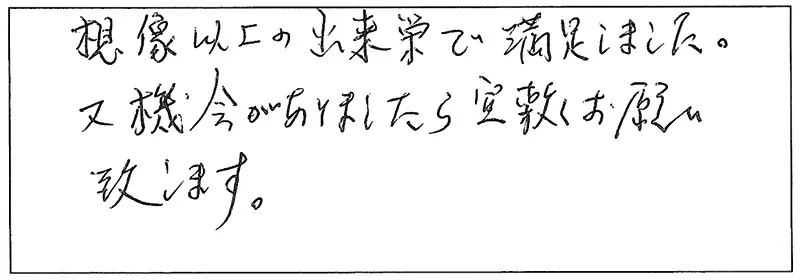 想像以上の出来栄で満足しました。
又機会がありましたら宜敷くお願い
致します。